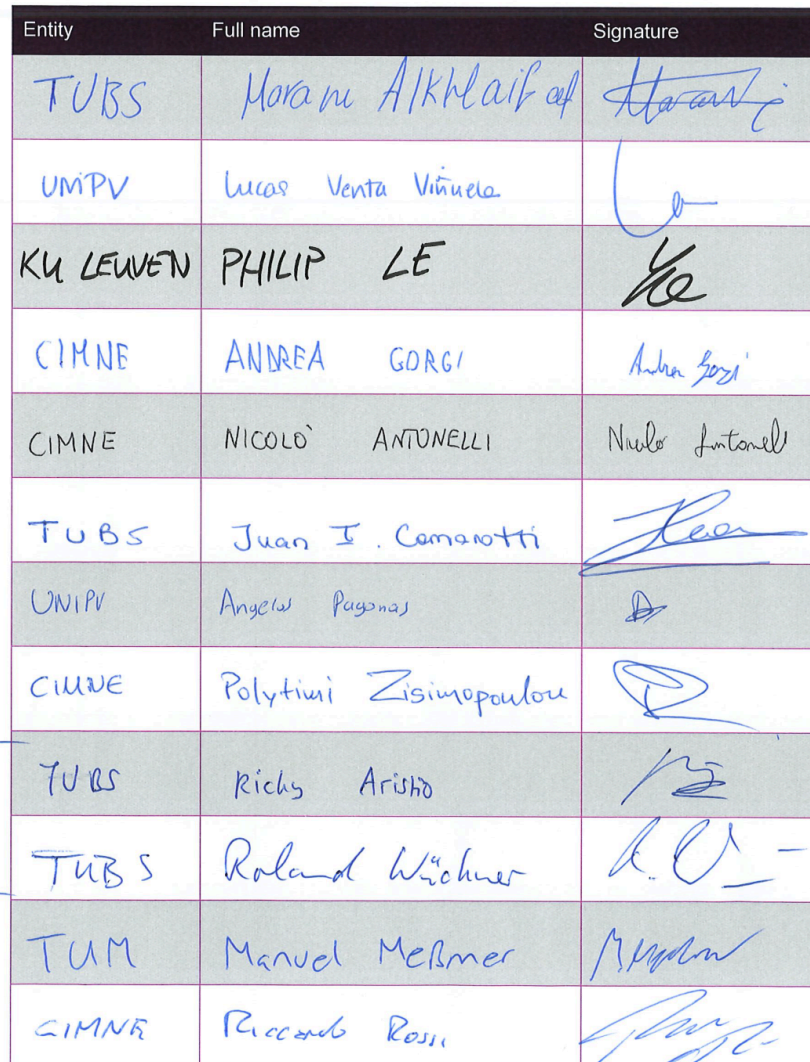 Entity Full name Signature
TUBS Morane Alkhlaif
UNIPV Lucas Venta Viñuela
KU LEUVEN PHILIP LE
CIMNE ANDREA GORGI Andrea Gorgi
CIMNE NICOLO' ANTONELLI Nicolo Antonelli
TUBS Juan I. Camarotti
UNIPV Angelos Pagonas
CIMNE Polytimi Zisimopoulou
TUBS Ricky Aristio
TUBS Roland Wüchner
TUM Manuel Meßmer
CIMNE Riccardo Rossi